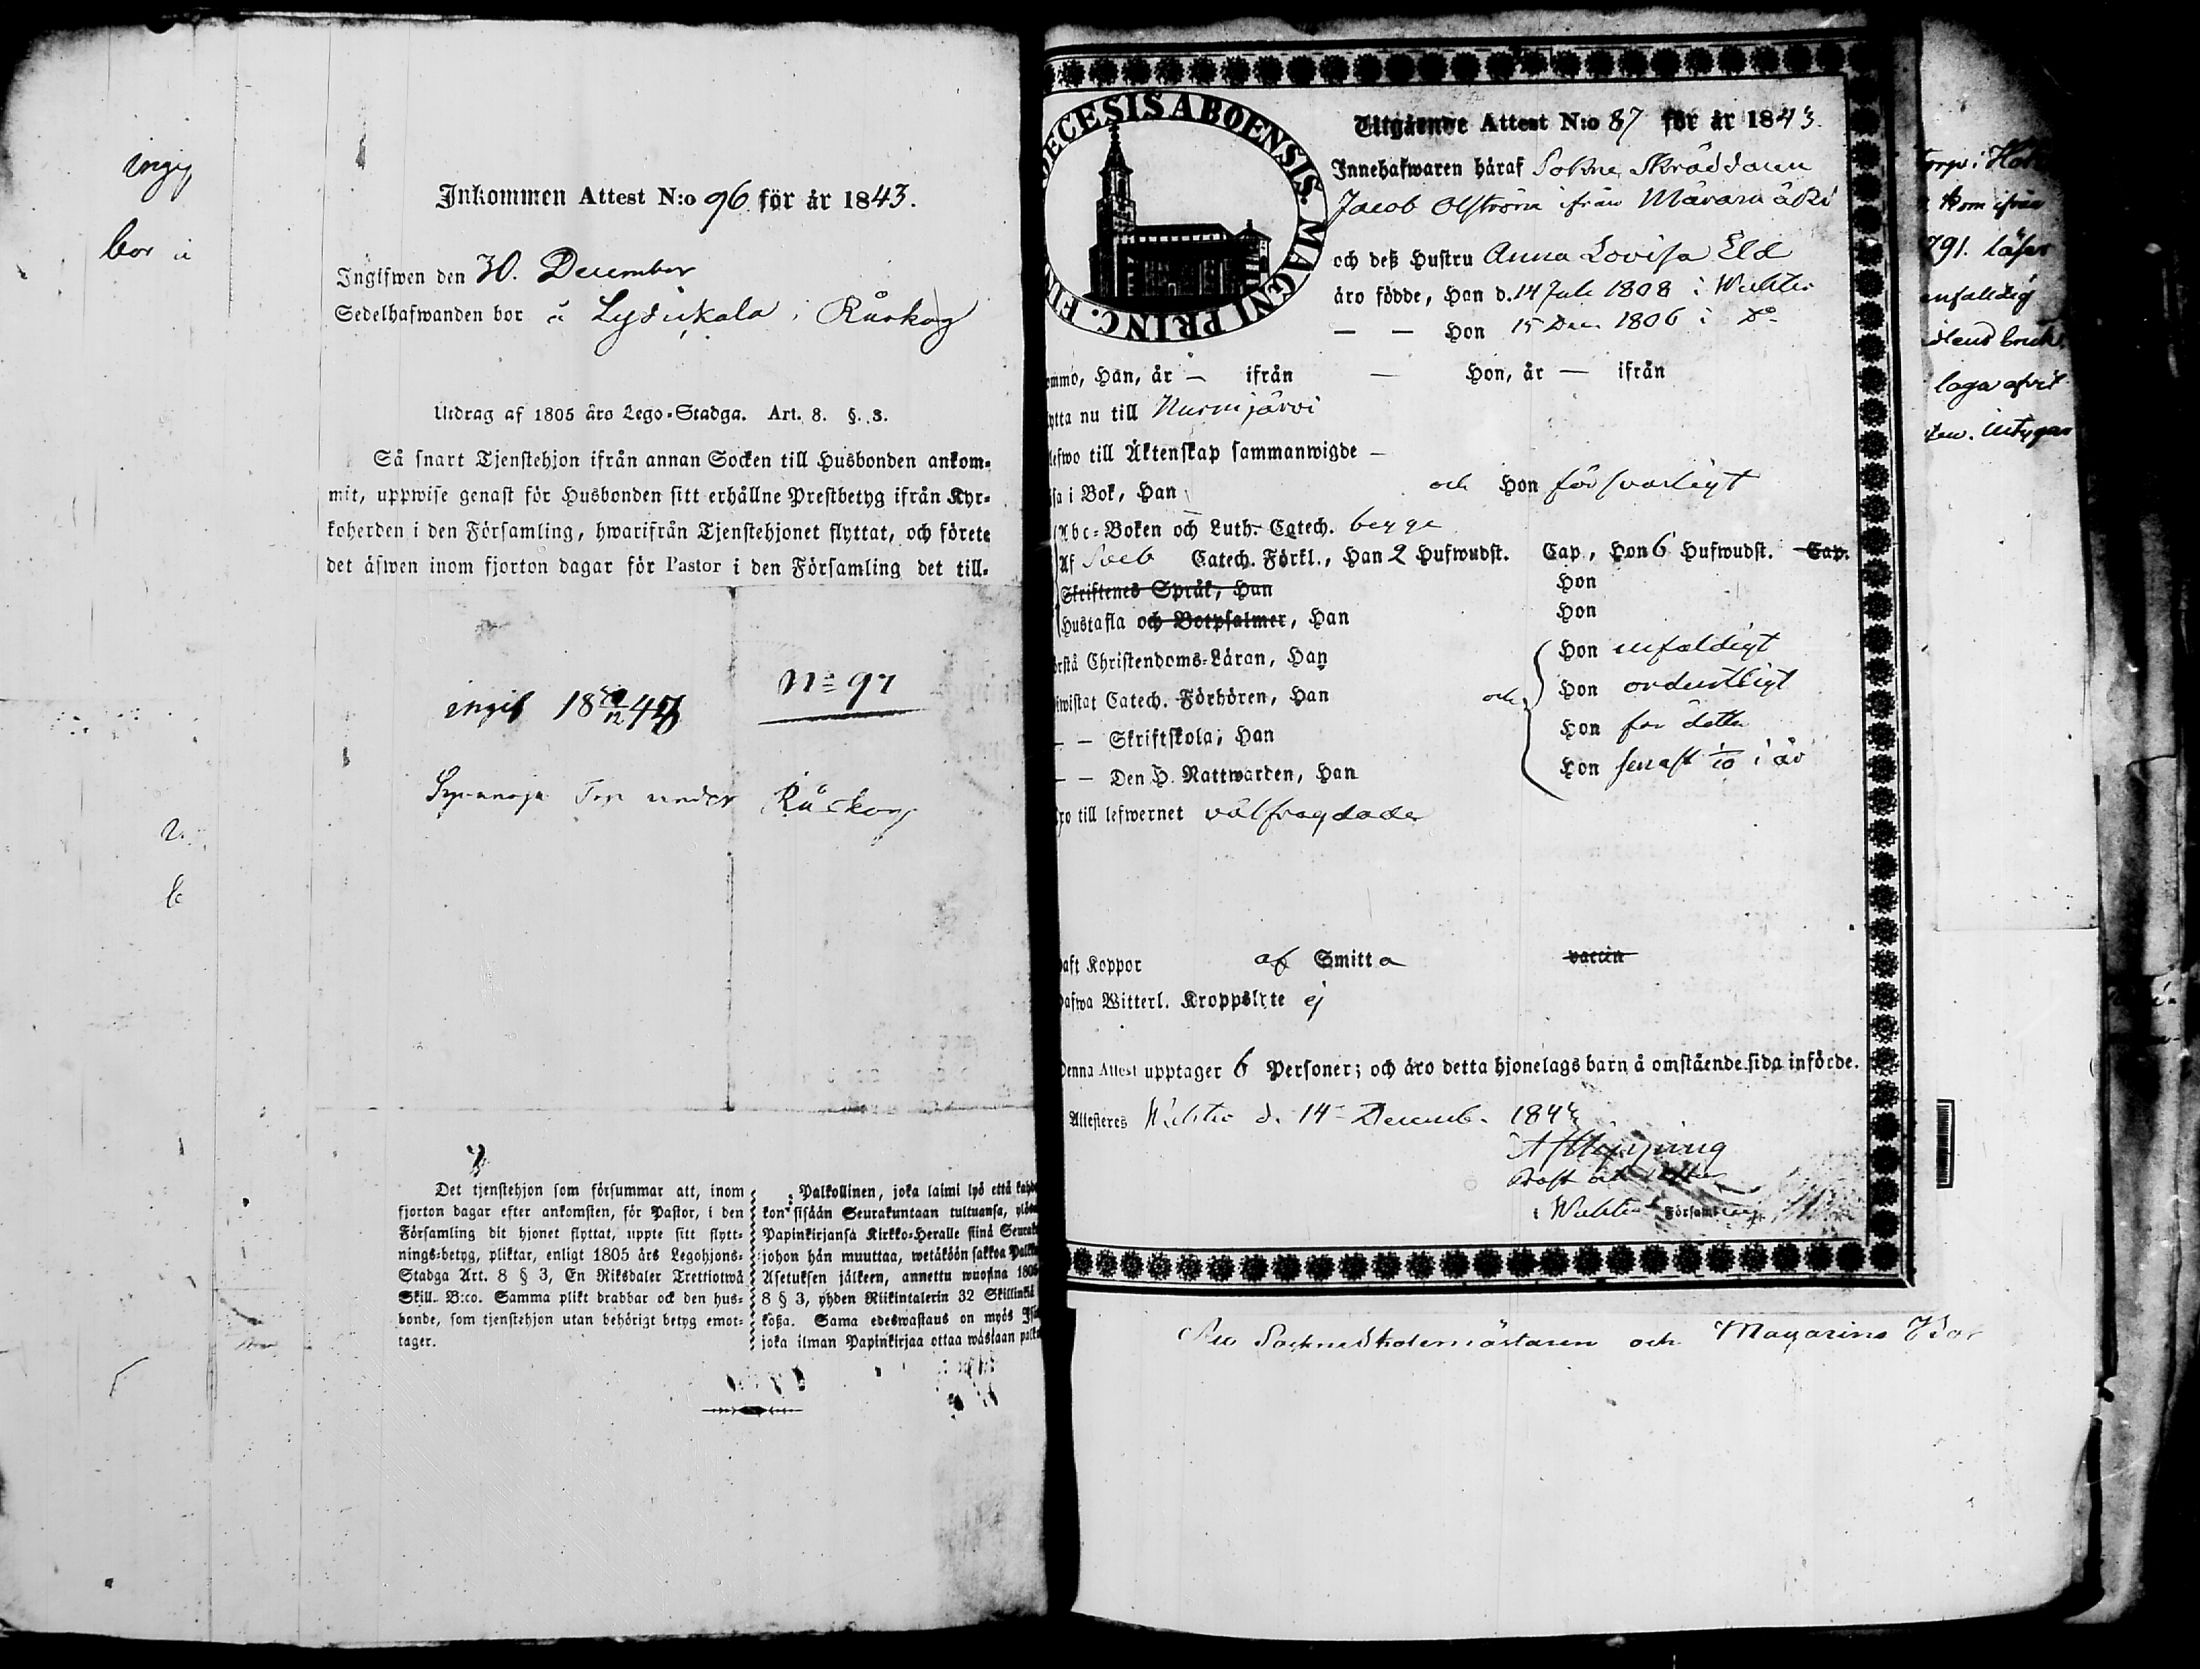 ingif
bor å
Inkommen Attest N:o 96 för år 1843.
Ingifwen den 30. December
Sedelhafwanden bor å Lydikala i Råskog
Utdrag af 1805 års Lego-Stadga. Art. 8. §. 3.
Så snart Tjenstehjon ifrån annan Socken till Husbonden ankom-
mit, uppwise genast för Husbonden sitt erhållne Prestbetyg ifrån Kyr-
koherden i den Församling, hwarifrån Tjenstehjonet flyttat, och förete
det äfwen inom fjorton dagar för Pastor i den Församling det till-
N:o 97
ingif
Torp under Råskog
Det tjenstehjon som försummar att, inom
fjorton dagar efter ankomsten, för Pastor, i den
Församling dit hjonet flyttat, uppte sitt flytt-
nings-betyg, pliktar, enligt 1805 års Legohjons-
Stadga Art. 8 § 3, En Riksdaler Trettiotwå
Skill. B:co. Samma plikt drabbar ock den hus-
bonde, som tjenstehjon utan behörigt betyg emot-
tager.
Palkollinen, joka laimi lyö että
kon sisään Seurakuntaan tultuansa,
Papinkirjansa Kirkko-Heralle siinä
johon hän muuttaa, wetäköön sakkoa
Asetuksen jälkeen, annettu wuosina 1805
8 § 3, yhden Riikintalerin 32 Skillinkiä
koßa. Sama edeswastaus on myös
joka ilman Papinkirjaa ottaa wastaan
DECESIS ABOENSIS. MAGNI PRINC. FI
Utgående Attest N:o 87 för år 1843.
Innehafwaren häraf Sokne Skräddaren
Jacob Olström ifrån
och deß Hustru Anna Lovisa Eld
äro födde, Han d. 14 Juli 1808 i Wichtis
— — Hon 15 Dec. 1806 i D:o
emmo, Han, år — ifrån — Hon, år — ifrån
ytta nu till Nurmijärvi
lefwo till Äktenskap sammanwigde —
sa i Bok, Han och Hon försvarligt
Abc-Boken och Luth. Catech. begge
Af Sveb Catech. Förkl., Han 2 Hufwudst. Cap, Hon 6 Hufwudst. Cap.
Skriftenes Språk, Han Hon
Hustafla och Botpsalmer, Han Hon
örstå Christendoms-Läran, Han Hon enfaldigt
iwistat Catech. Förhören, Han och Hon ordentligt
— — Skriftskola, Han Hon för detta
— — Den H. Nattwarden, Han Hon senast i år
ro till lefwernet välfrägdade
aft Koppor af Smitta vaccin
afwa Witterl. Kroppslyte ej
Denna Attest upptager 6 Personer; och äro detta hjonelags barn å omstående sida införde.
Attesteres Wichtis d. 14 Decemb. 1843
i Wichtis Församling
SockneSkolemästaren och Magasins
torp i
kom ifrån
791. läser
enfaldig
laga
Intygar